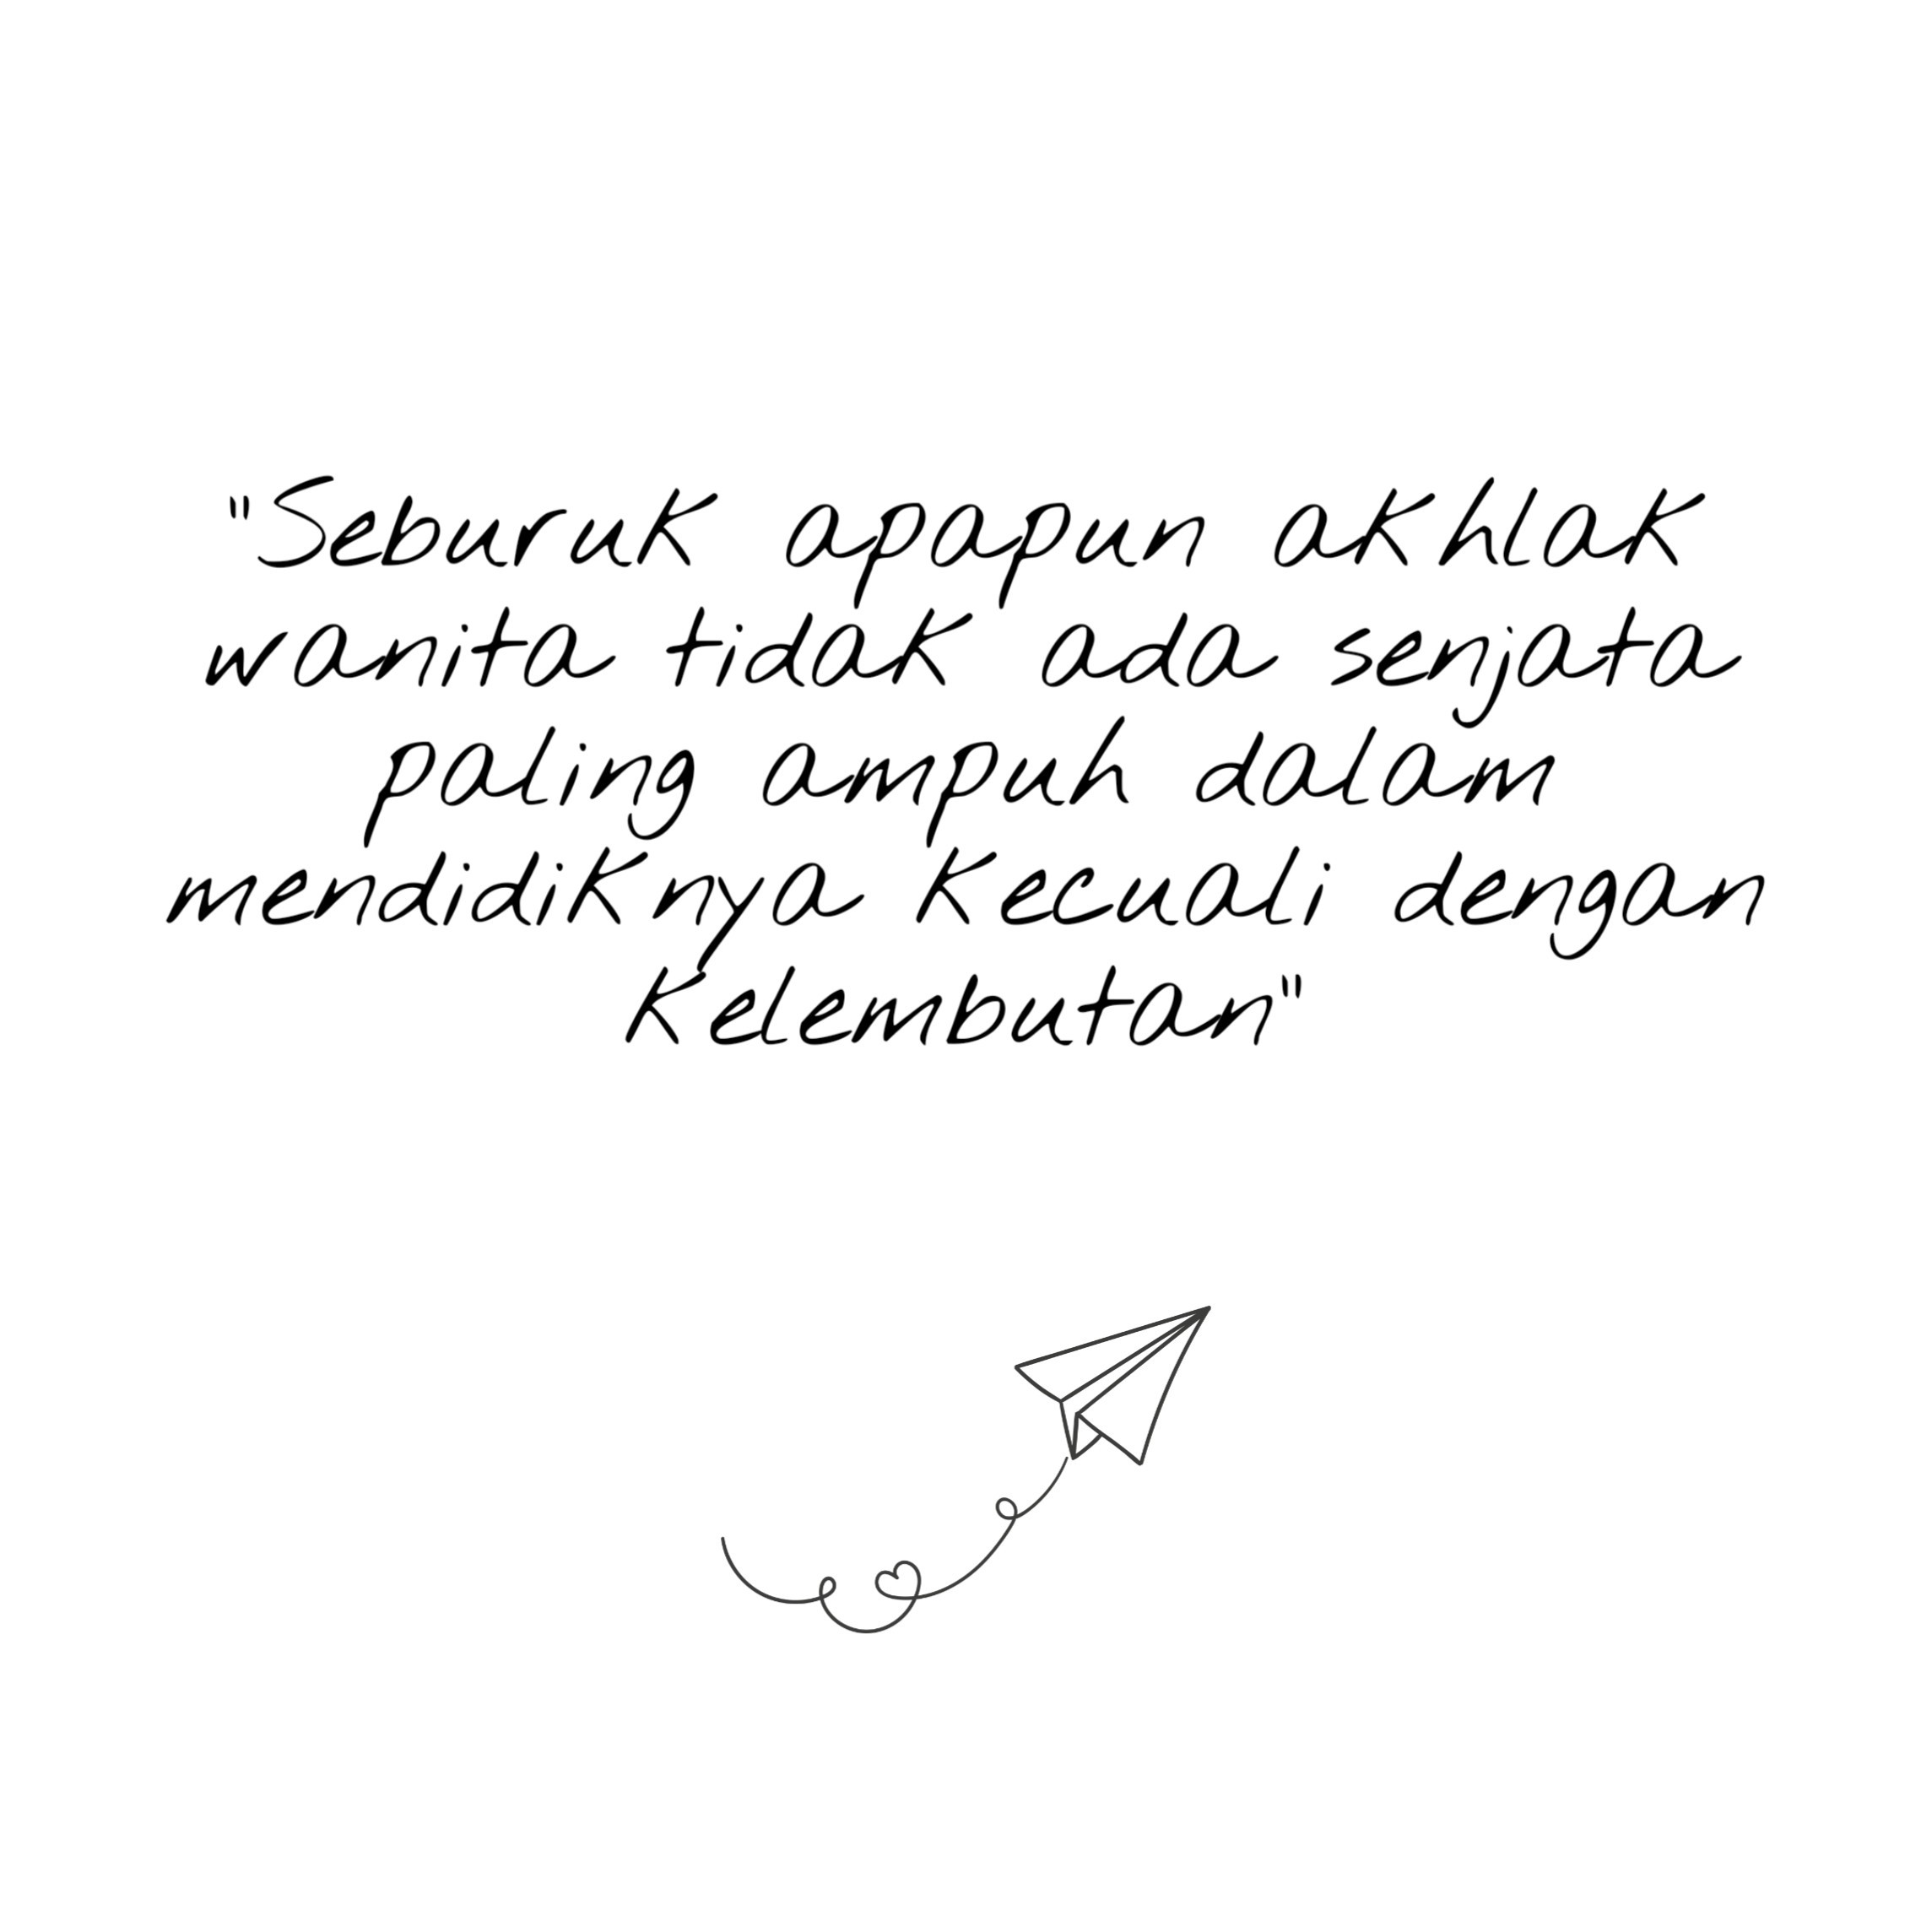 "Seburuk apapun akhlak
wanita tidak ada senjata
paling ampuh dalam
mendidiknya kecuali dengan
kelembutan"